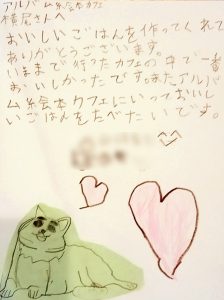 アルバム絵本カフェ
横尾さんへ
おいしいごはんを作ってくれて
ありがとうございます。
いままで行ったカフェの中で一番
おいしかったですまたアルバ
ム絵本カフェにいっておいし
いごはんをたべたいです。